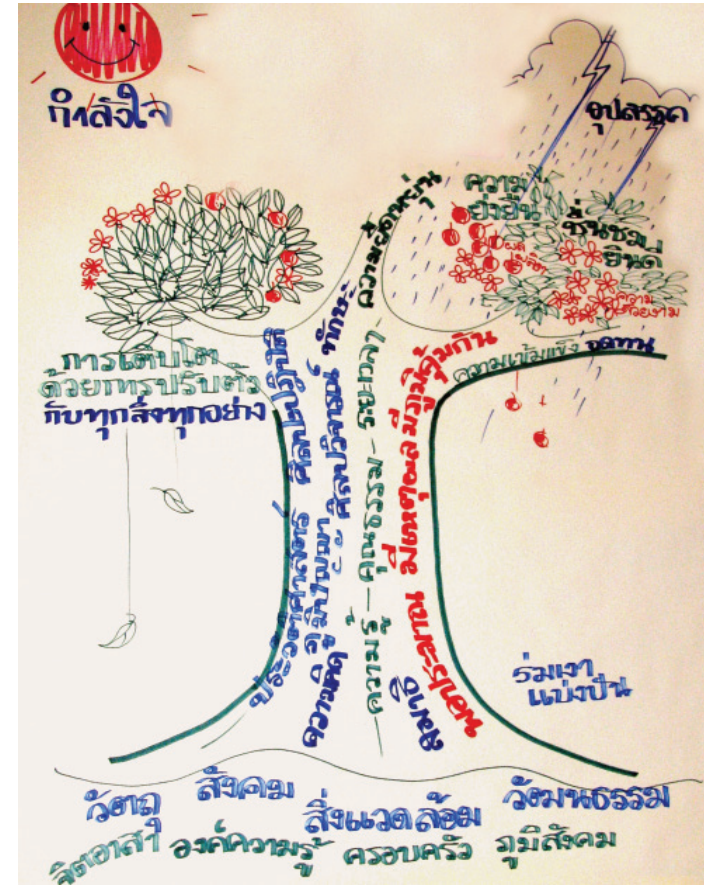 กำลังใจ
อุปสรรค
ความ
ยั่งยืน
ชื่นชม
ยินดี
ผล
ความ
สวยงาม
การเติบโต
ด้วยการปรับตัว
กับทุกสิ่งทุกอย่าง
ความเข้มแข็ง อดทน
ประวัติศาสตร์ ศิลปะปฏิบัติ
ความคิด ภูมิปัญญา ศิลปวิจารณ์ ทักษะ
ความรู้ – คุณธรรม – ระยะเวลา ความยืดหยุ่น
สมาธิ
พอประมาณ มีเหตุผล มีภูมิคุ้มกัน
ร่มเงา
แบ่งปัน
วัตถุ สังคม สิ่งแวดล้อม วัฒนธรรม
จิตอาสา องค์ความรู้ ครอบครัว ภูมิสังคม